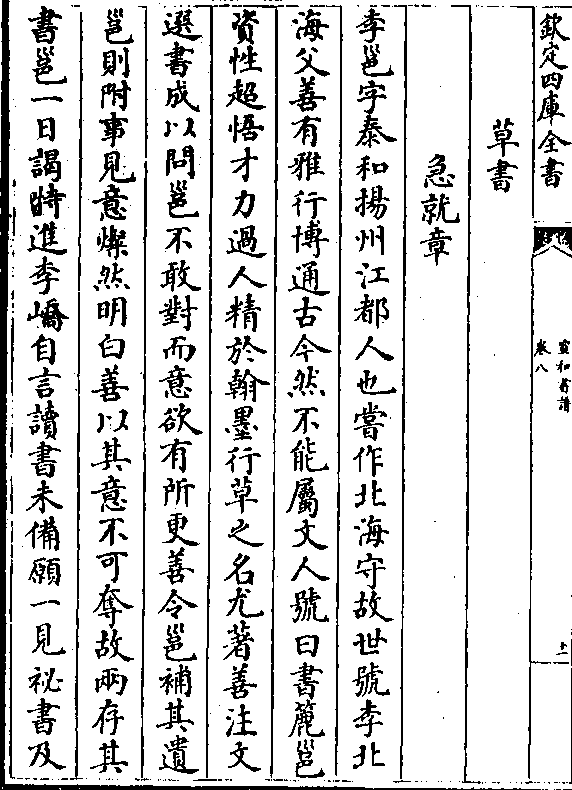 欽定四庫全書
宣和書譜
卷八
十一
草書
急就章
李邕字泰和揚州江都人也嘗作北海守故世號李北
海父善有雅行博通古今然不能屬文人號曰書簏邕
資性超悟才力過人精於翰墨行草之名尤著善注文
選書成以問邕不敢對而意欲有所更善令邕補其遺
邕則附事見意燦然明白善以其意不可奪故兩存其
書邕一日謁特進李嶠自言讀書未備願一見祕書及